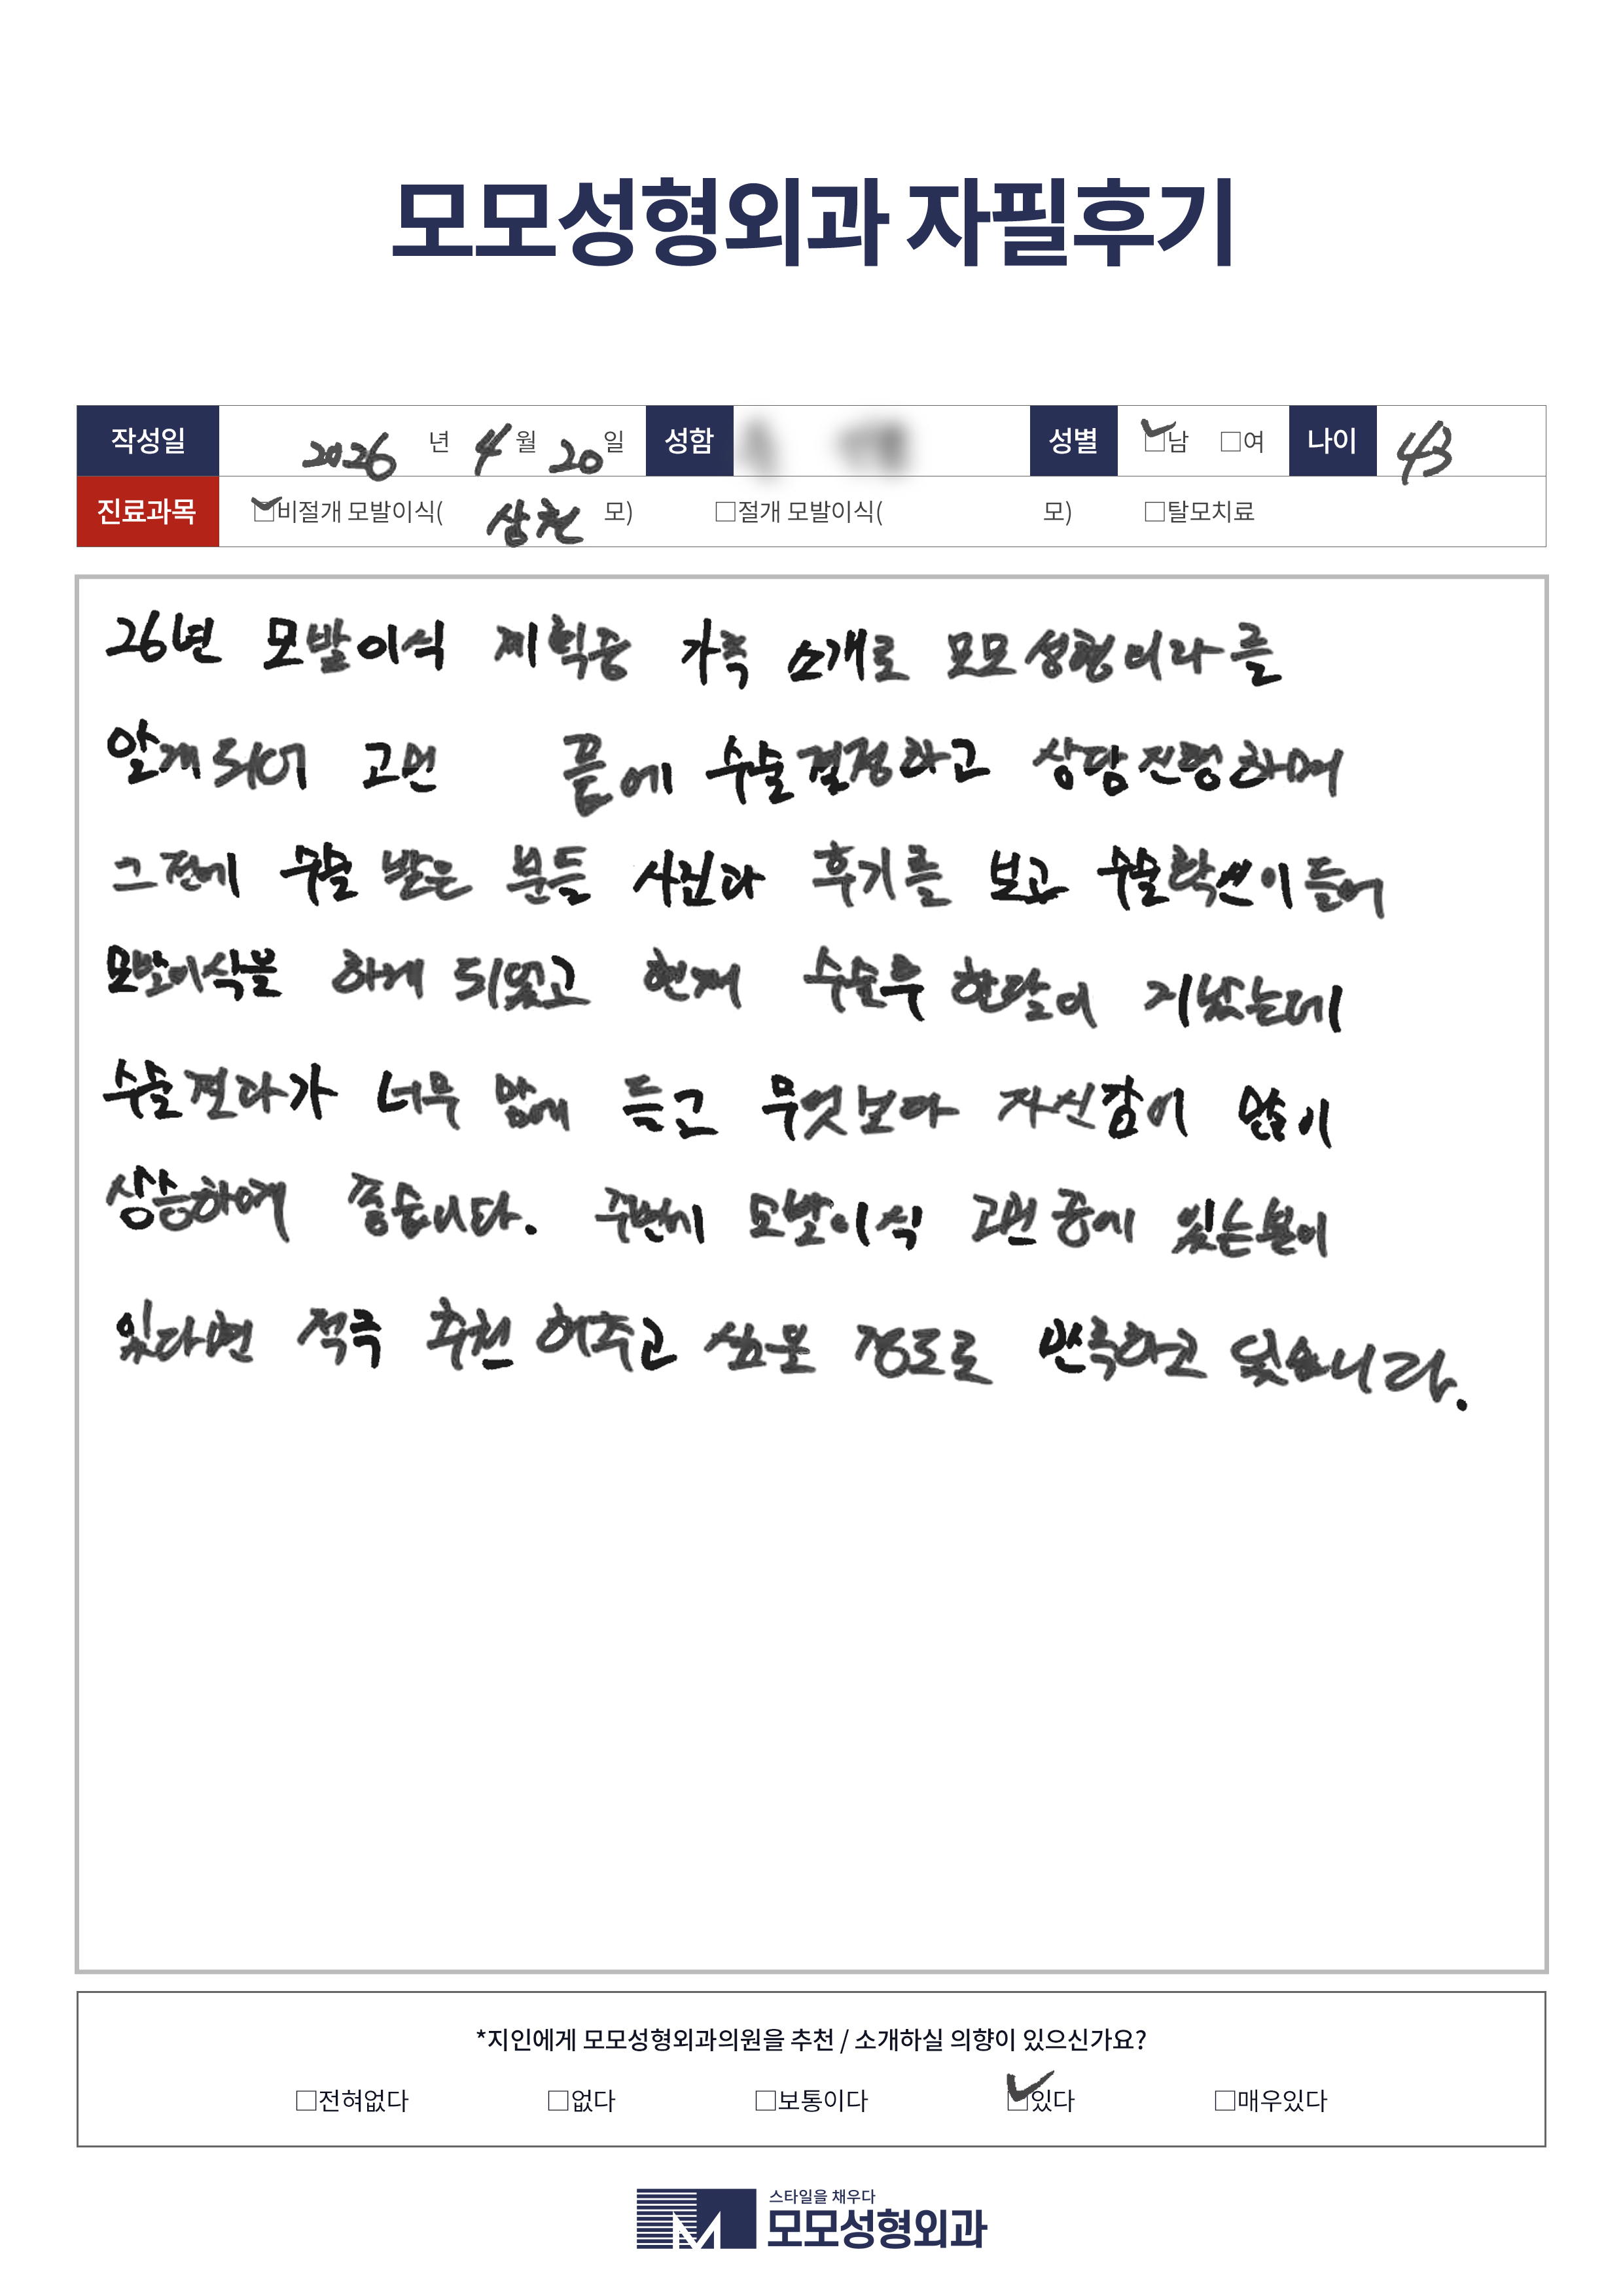 모모성형외과 자필후기
작성일 2026 년 4 월 20 일 성함 성별 □남 □여 나이 43
진료과목 □비절개 모발이식( 삼천 모) □절개 모발이식( 모) □탈모치료
26년 모발이식 계획중 가족 소개로 모모성형외과를
알게되어 고민 끝에 수술결정하고 상담진행하며
그전에 수술 받은 분들 사진과 후기를 보고 수술확신이 들어
모발이식을 하게 되었고 현재 수술후 한달이 지났는데
수술결과가 너무 맘에 들고 무엇보다 자신감이 많이
상승하여 좋습니다. 주변에 모발이식 고민중에 있는분이
있다면 적극 추천 해주고 싶을 정도로 만족하고 있습니다.
*지인에게 모모성형외과의원을 추천 / 소개하실 의향이 있으신가요?
□전혀없다 □없다 □보통이다 □있다 □매우있다
스타일을 채우다
모모성형외과